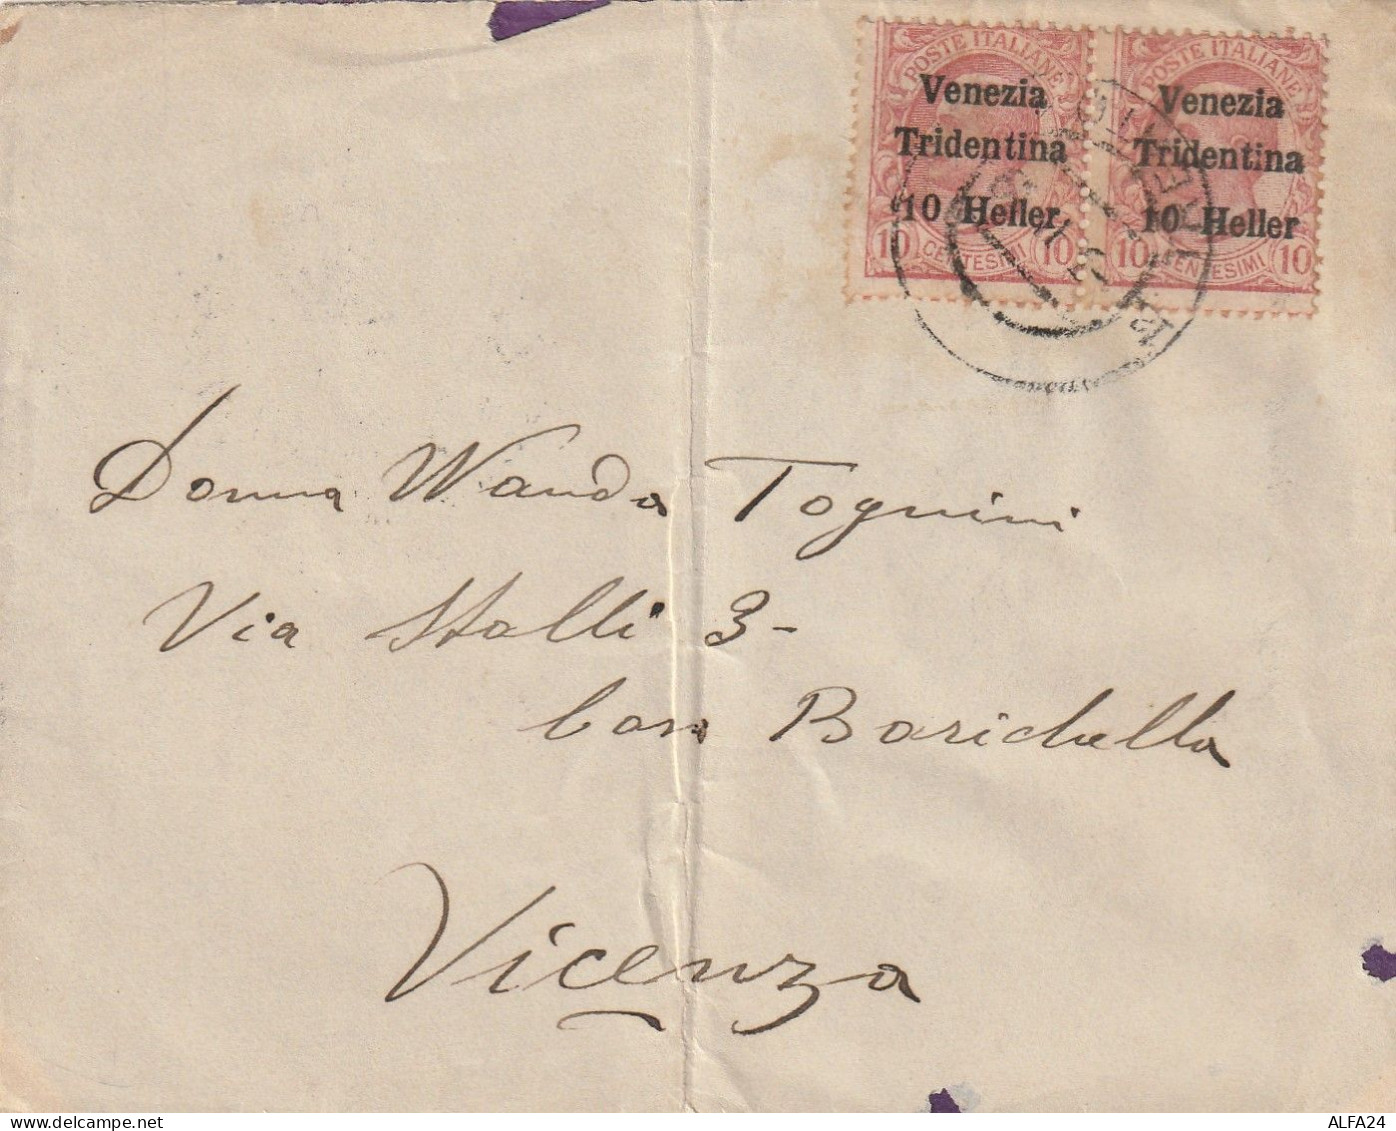 POSTE ITALIANE
Venezia
Tridentina
10 Heller
10 CENTESIMI 10
POSTE ITALIANE
Venezia
Tridentina
10 Heller
10 CENTESIMI 10
Donna Wanda Tognini
Via Stalli 3-
Casa Barichella
Vicenza
ALFA24